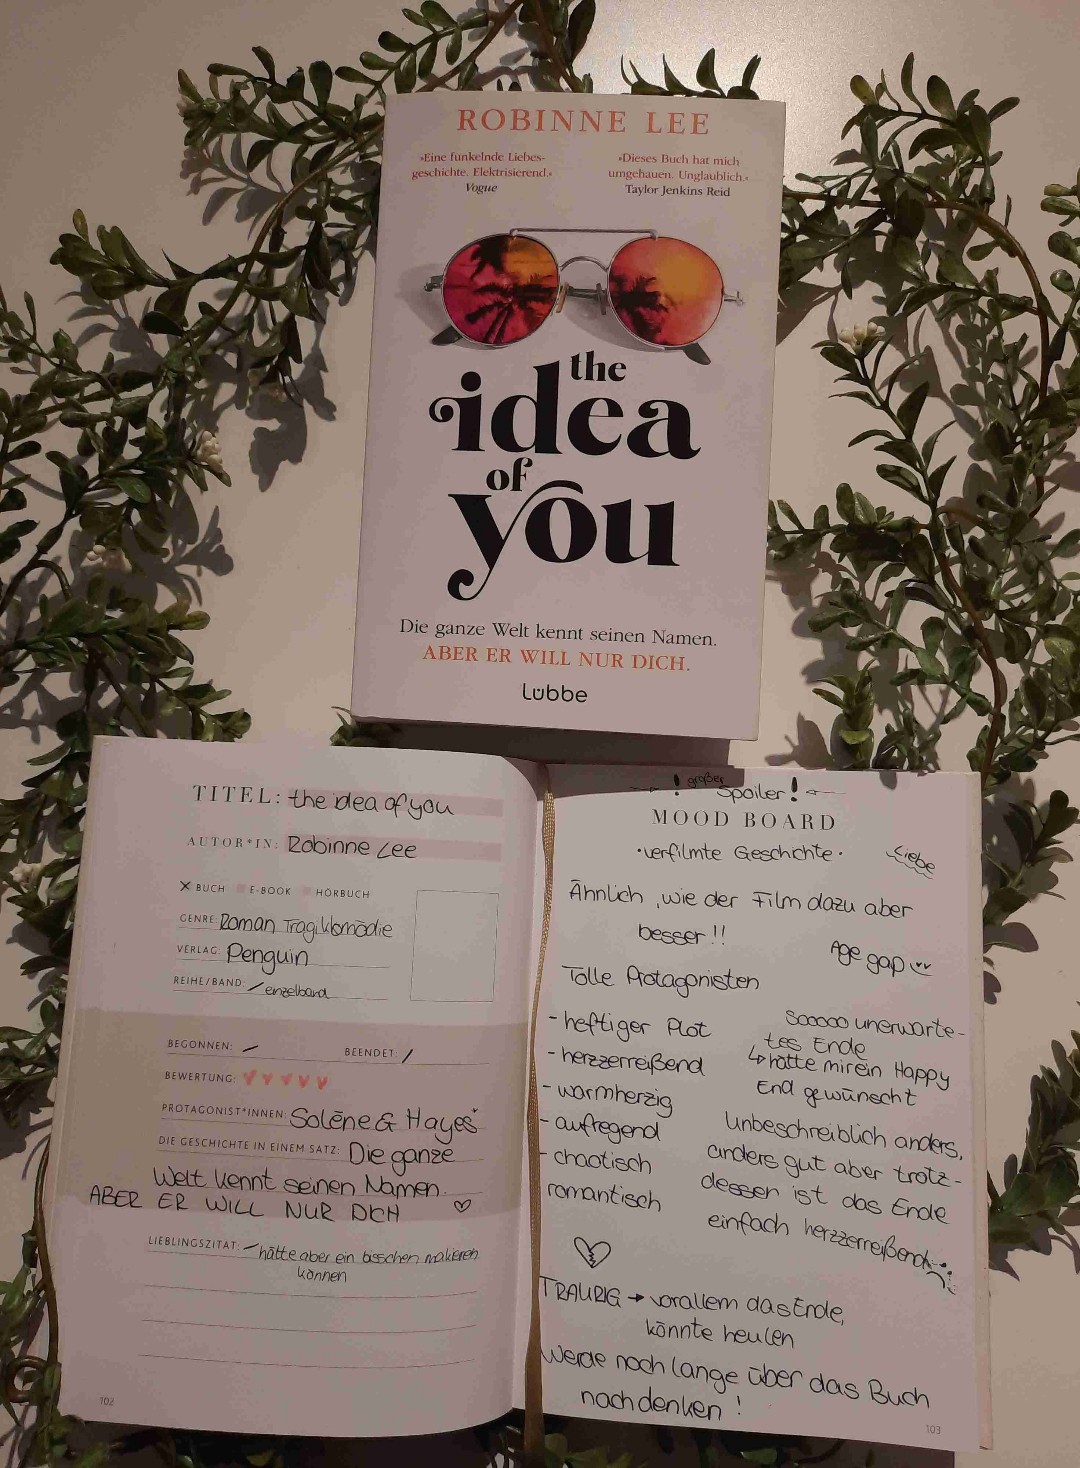 ROBINNE LEE
»Eine funkelnde Liebes-
geschichte. Elektrisierend.«
Vogue
»Dieses Buch hat mich
umgehauen. Unglaublich.«
Taylor Jenkins Reid
the
idea
of
you
Die ganze Welt kennt seinen Namen.
ABER ER WILL NUR DICH.
Lübbe
TITEL: the idea of you
AUTOR*IN: Robinne Lee
X BUCH E-BOOK HÖRBUCH
GENRE: Roman Tragikomödie
VERLAG: Penguin
REIHE/BAND: / einzelband
BEGONNEN: / BEENDET: /
BEWERTUNG:
PROTAGONIST*INNEN: Solēne & Hayes
DIE GESCHICHTE IN EINEM SATZ: Die ganze
Welt kennt seinen Namen.
ABER ER WILL NUR DICH
LIEBLINGSZITAT: – hätte aber ein bisschen makieren
können
102
! großer
Spoiler!
MOOD BOARD
• verfilmte Geschichte •
Liebe
Ähnlich, wie der Film dazu aber
besser!!
Age gap
Tolle Protagonisten
- heftiger Plot
- herzzerreißend
- warmherzig
- aufregend
- chaotisch
romantisch
Sooooo unerwarte-
tes Ende
↳ hätte mir ein Happy
End gewünscht
Unbeschreiblich anders,
anders gut aber trotz-
dessen ist das Ende
einfach herzzerreißend
TRAURIG → vorallem das Ende,
könnte heulen
Werde noch lange über das Buch
nachdenken!
103